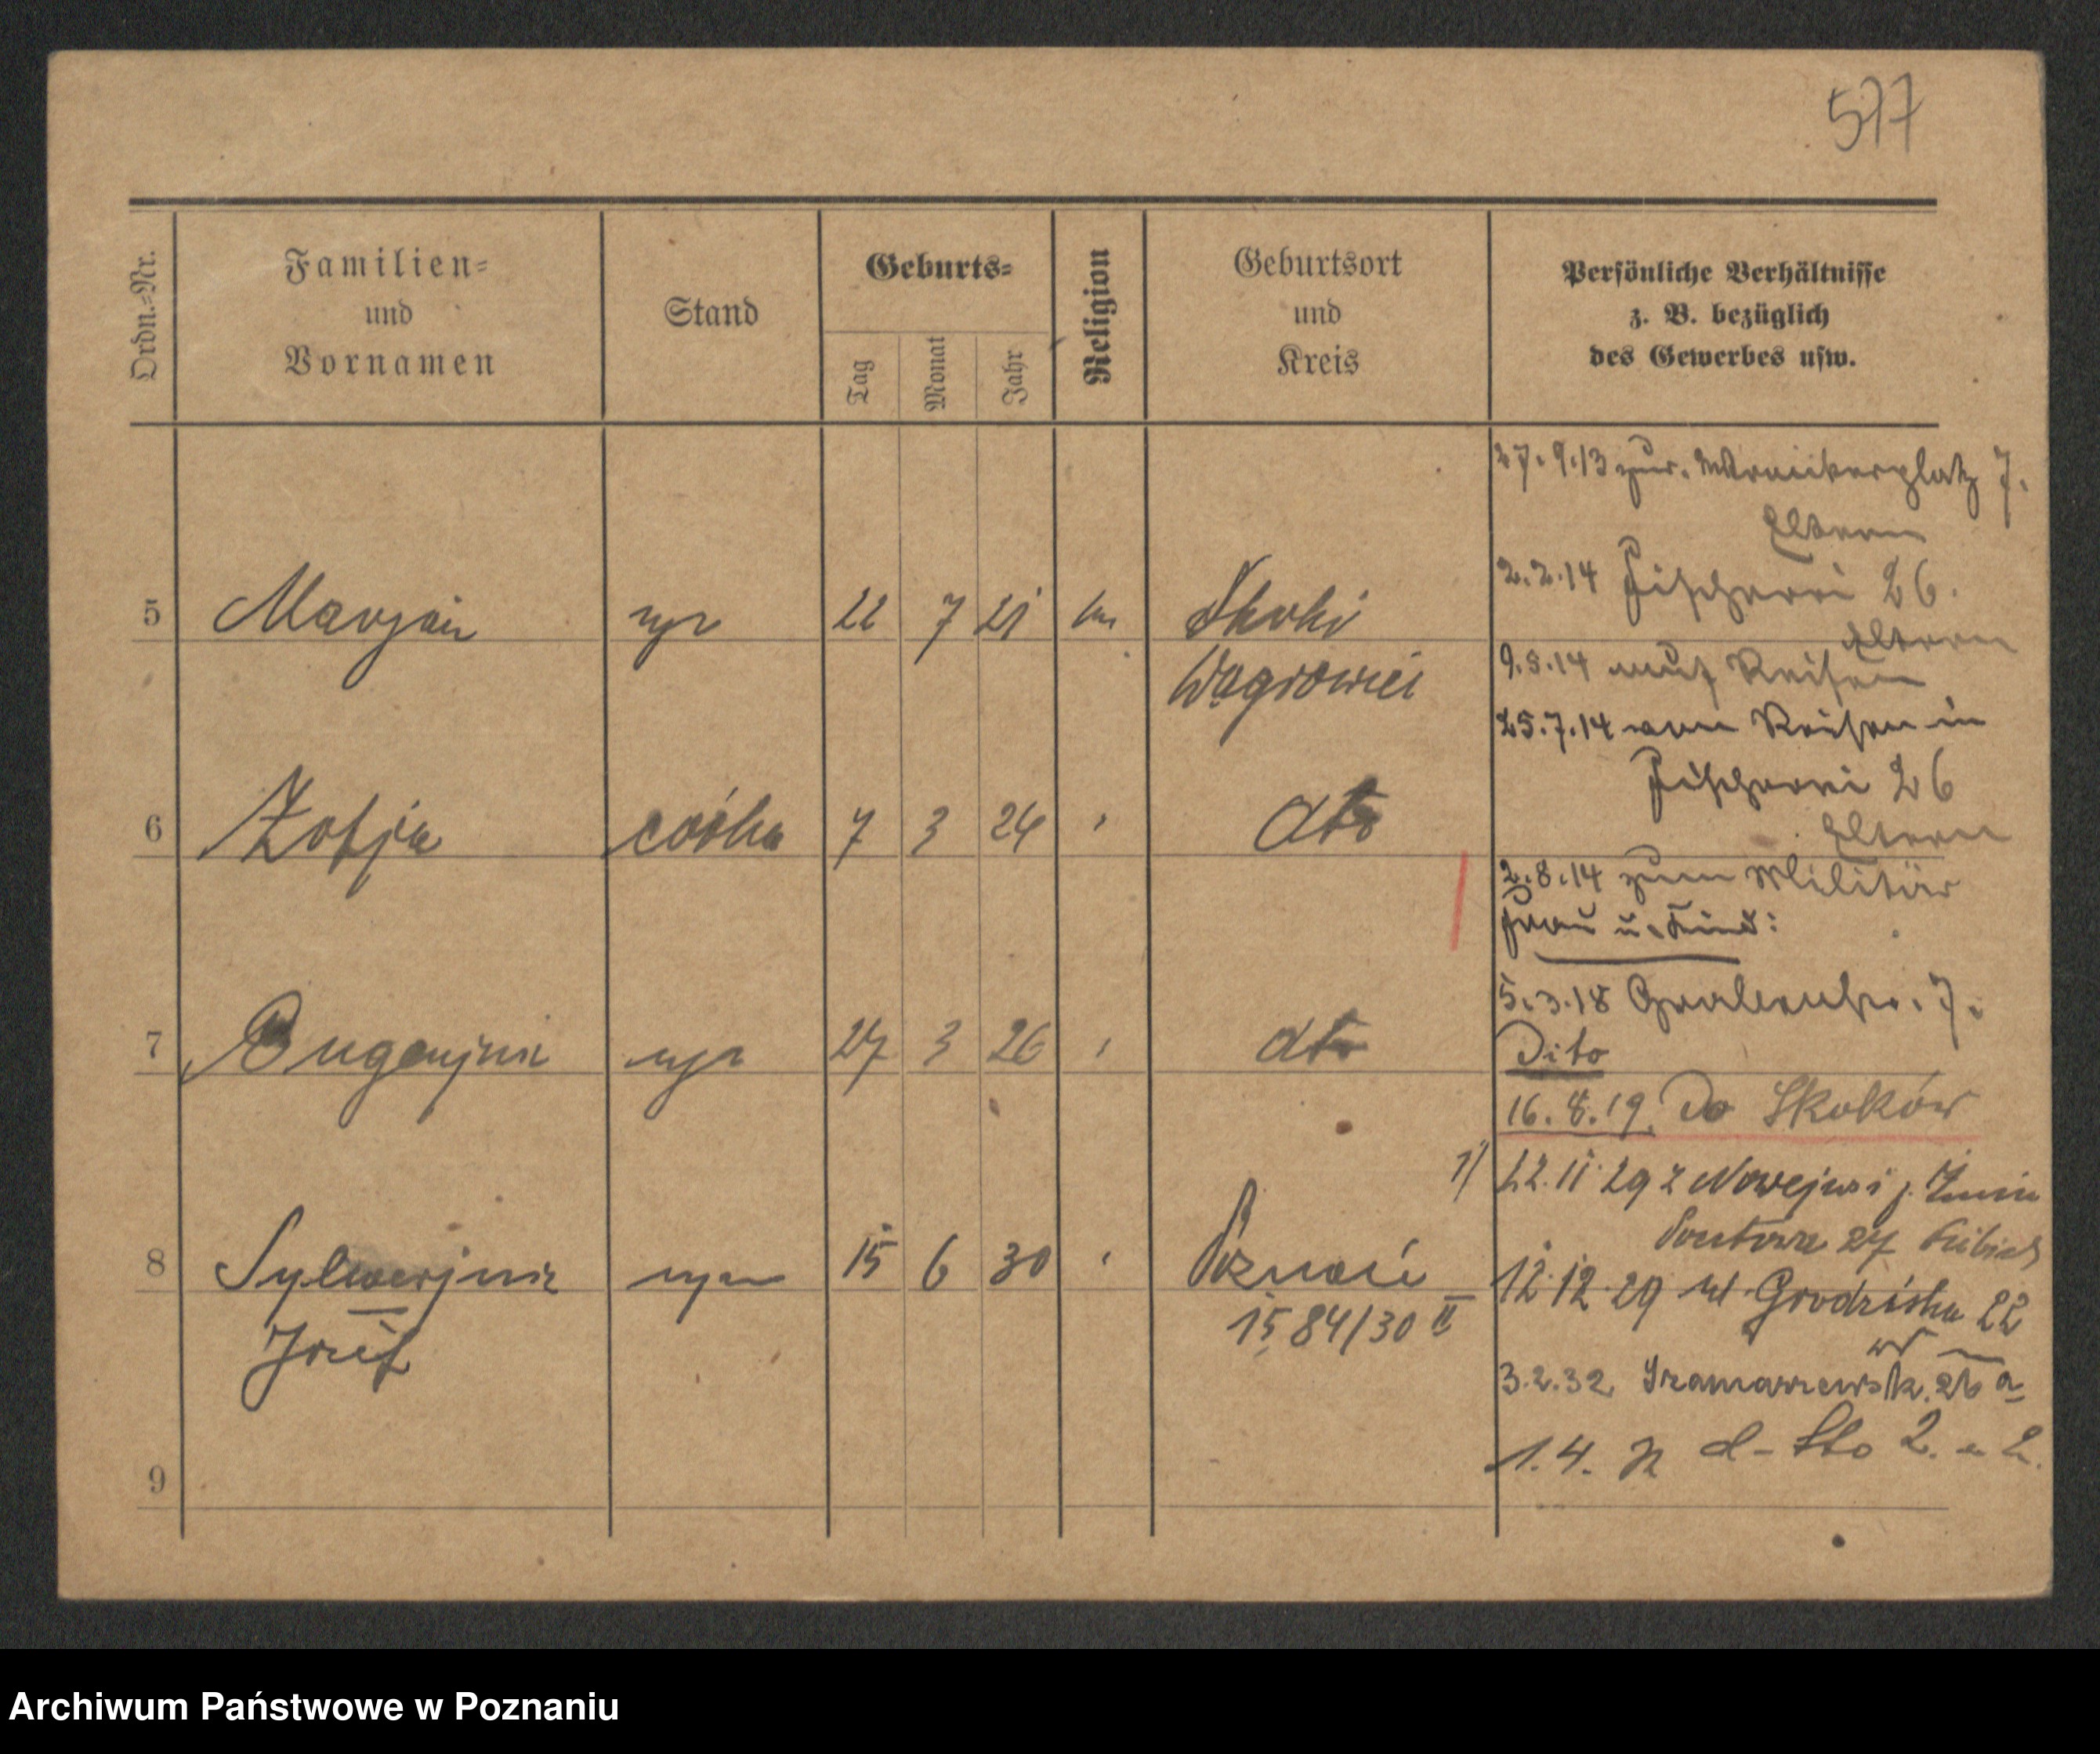 577
Ordn.-Nr.
Familien-
und
Vornamen
Stand
Geburts-
Tag
Monat
Jahr
Religion
Geburtsort
und
Kreis
Persönliche Verhältnisse
z. B. bezüglich
des Gewerbes usw.
27.9.13 zur. 7.
Eltern
2.2.14 Fischerei 26.
Eltern
5 Marjan syn 22 7 21 Skoki
Wągrowiec
9.5.14 auf Reisen
25.7.14 von Reisen in
Fischerei 26
Eltern
6 Zofja córka 7 3 24 dto
2.8.14 zum Militär
Frau u. Kind:
5.3.18 Grabenstr. 7.
7 Eugenjusz syn 27 3 26 dto
Dito
16.8.19. Do Skoków
1) 22.11.29 z Nowejwsi p. Żnin
27
8 Sylwerjusz syn 15 6 30 Poznań
Józef
1584/30 II
12.12.29 ul. Grodziska 22
3.2.32. 26 a
9
1.4.
Archiwum Państwowe w Poznaniu